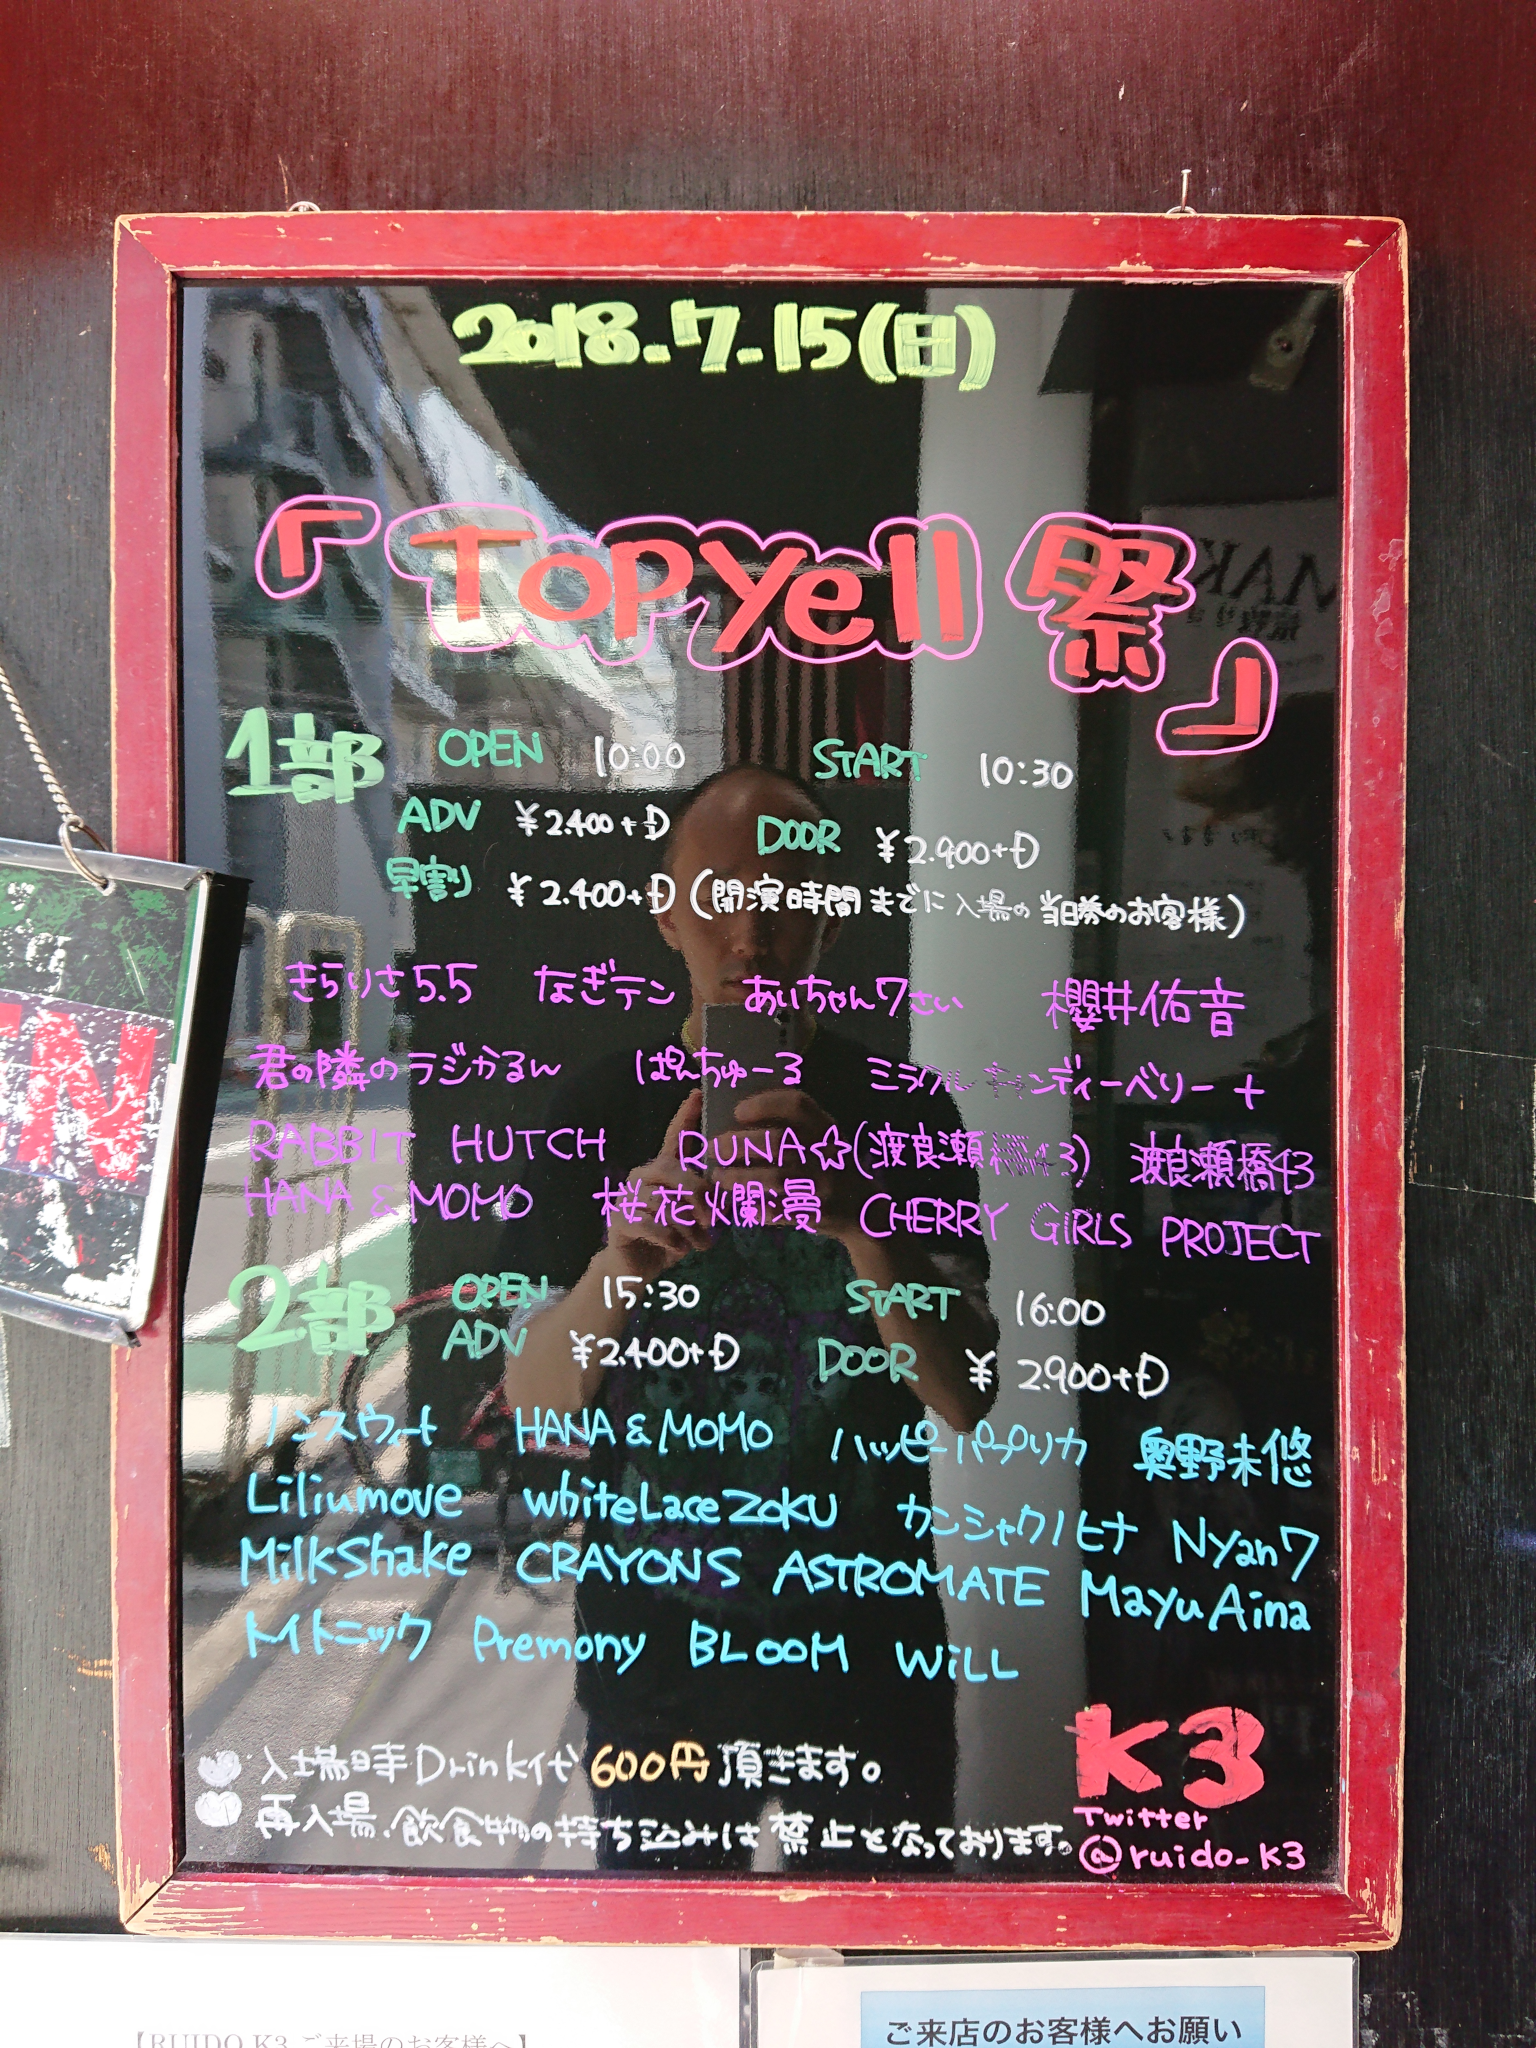 2018.7.15(日)
「TOPYell 祭」
1部 OPEN 10:00 START 10:30
ADV ¥2.400+D DOOR ¥2.900+D
早割 ¥2.400+D (開演時間までに入場の当日券のお客様)
きらりさ5.5 なぎテン あいちゃん7さい 櫻井佑音
君の隣のラジかるん ぱんちゅーる ミラクルキャンディーベリー+
RABBIT HUTCH RUNA☆(渡良瀬橋43) 渡良瀬橋43
HANA&MOMO 桜花爛漫 CHERRY GIRLS PROJECT
2部 OPEN 15:30 START 16:00
ADV ¥2.400+D DOOR ¥2.900+D
ノンスウィート HANA&MOMO ハッピーパプリカ 奥野未悠
Liliumove whiteLaceZoKU カンシャクノヒナ Nyan7
MilkShake CRAYONS ASTROMATE MayuAina
Mトニック Premony BLooM WiLL
入場時Drink代600円頂きます。
再入場、飲食物の持ち込みは禁止となっております。
K3
Twitter
@ruido_K3
【RUIDO K3 ご来場のお客様へ】
ご来店のお客様へお願い